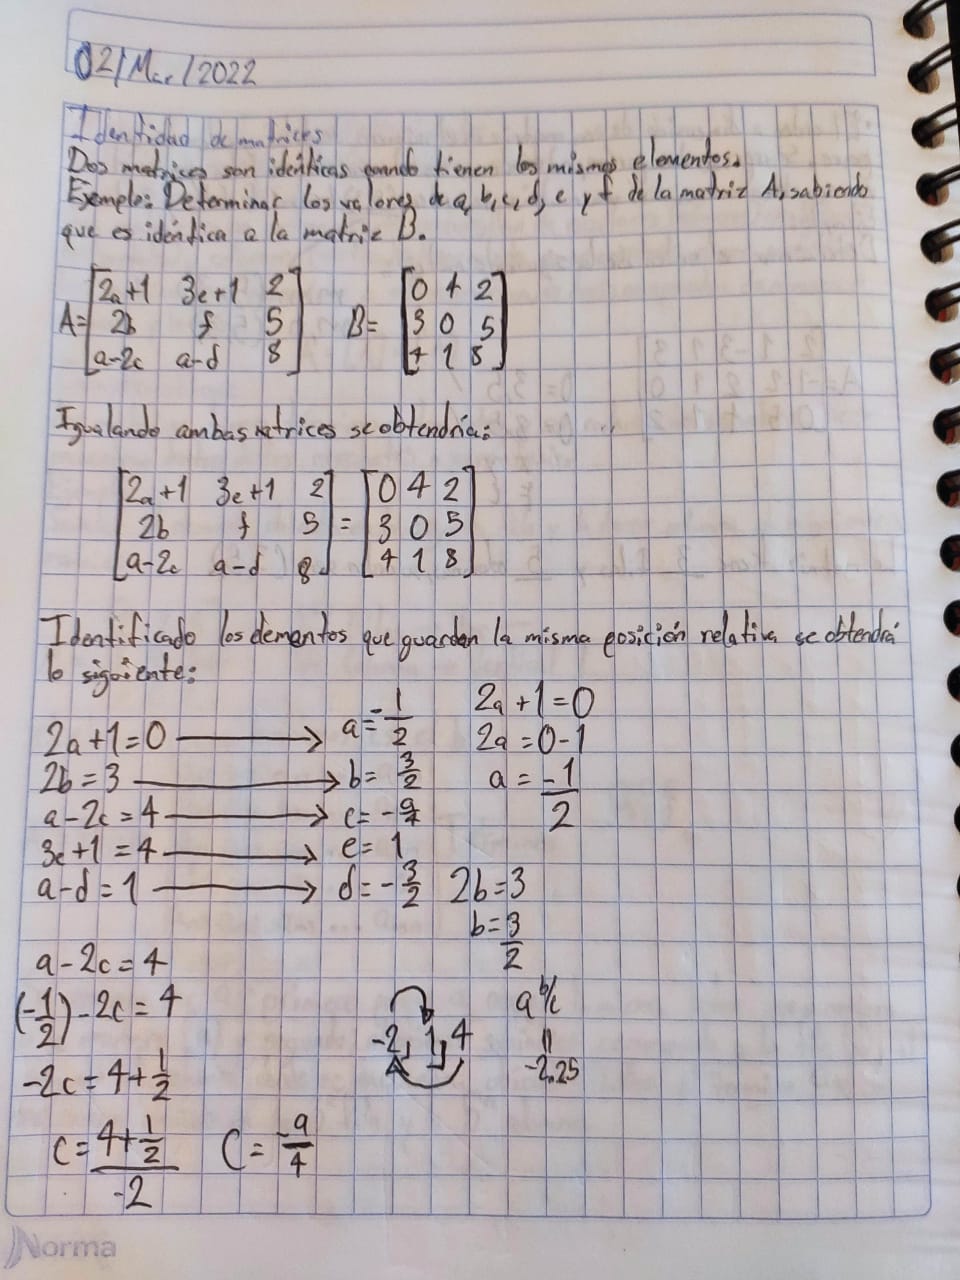 02/Mar/2022
Identidad de matrices
Dos matrices son idénticas cuando tienen los mismos elementos.
Ejemplo: Determinar los valores de a, b, c, d, e y f de la matriz A, sabiendo
que es idéntica a la matriz B.
A= [2a+1 3e+1 2] B= [0 4 2]
[2b f 5] [3 0 5]
[a-2c a-d 8] [4 1 8]
Igualando ambas matrices se obtendría:
[2a+1 3e+1 2] [0 4 2]
[2b f 5] = [3 0 5]
[a-2c a-d 8] [4 1 8]
Identificado los elementos que guardan la misma posición relativa se obtendrá
lo siguiente:
2a+1=0 → a=-1/2
2b=3 → b=3/2
a-2c=4 → c=-9/4
3e+1=4 → e=1
a-d=1 → d=-3/2
2a+1=0
2a=0-1
a=-1/2
2b=3
b=3/2
a-2c=4
(-1/2)-2c=4
-2c=4+1/2
c=4+1/2/-2 C=-9/4
-2, 1, 4
a b/c
-2.25
Norma